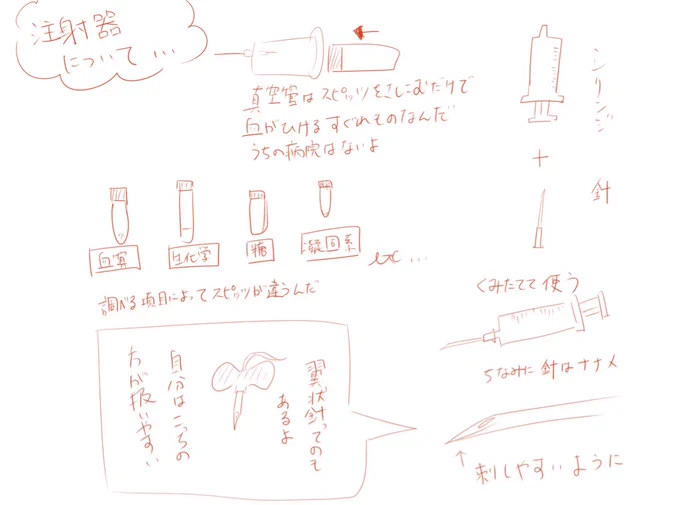 注射器
について…
真空管はスピッツをさしこむだけで
血がひけるすぐれものなんだ
うちの病院はないよ
シリンジ
+
針
血算
生化学
糖
凝固系
etc…
調べる項目によってスピッツが違うんだ
くみたてて使う
ちなみに針はナナメ
↑刺しやすいように
翼状針ってのも
あるよ
自分はこっちの
方が扱いやすい